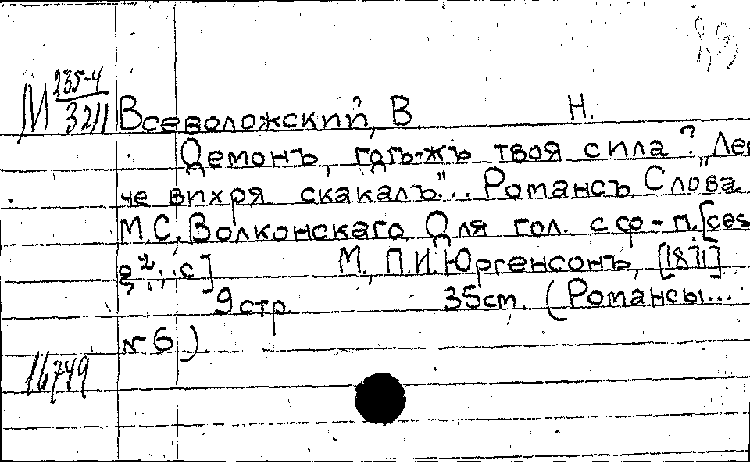 М 235-4
3211 Всеволожский, В Н.
Демонъ, гдѣ-жъ твоя сила? „Лег
че вихря скакалъ"... Романсъ Слова
М.С. Волконскаго Для гол. с ф-п. [ces
е²; с] М., П.И. Юргенсонъ, [1871]
9 стр. 35 cm. (Романсы...
№6).
16749